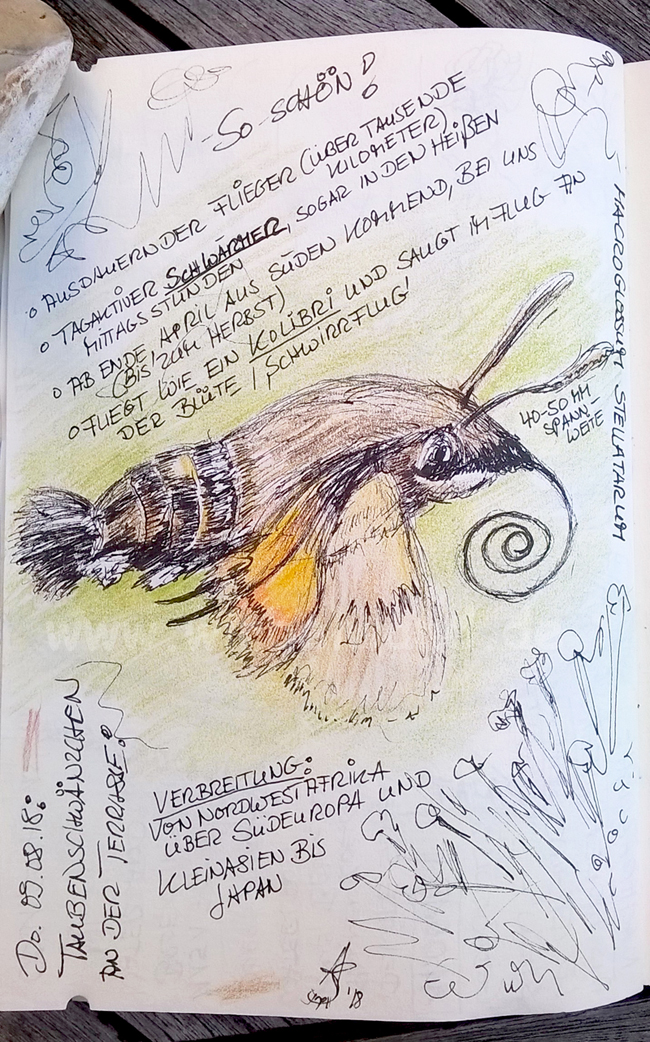 -SO SCHÖN!
o AUSDAUERNDER FLIEGER (ÜBER TAUSENDE
KILOMETER)
o TAGAKTIVER SCHWÄRMER, SOGAR IN DEN HEIßEN
MITTAGSSTUNDEN
o AB ENDE APRIL AUS SÜDEN KOMMEND, BEI UNS
(BIS ZUM HERBST)
o FLIEGT WIE EIN KOLIBRI UND SAUGT IM FLUG AN
DER BLÜTE / SCHWIRRFLUG!
MACROGLOSSUM STELLATARUM
40-50 MM
SPANN-
WEITE
Do. 09.08.18:
TAUBENSCHWÄNZCHEN
AN DER TERRASSE!
VERBREITUNG:
VON NORDWESTAFRIKA
ÜBER SÜDEUROPA UND
KLEINASIEN BIS
JAPAN
'18